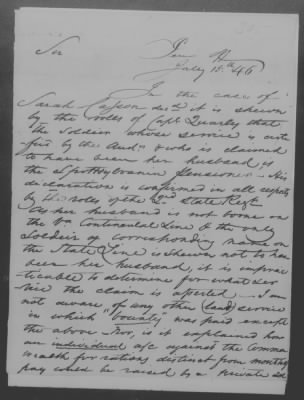 Pen. Off.
July 15th 46
Sir
In the case of
Sarah Cason decd it is shewn
by the rolls of Capt Quarles that
the soldier whose service is certi-
fied by the Audr & who is claimed
to have been her husband is
the Spottsylvania pensioner. His
declaration is confirmed in all respects
by the rolls of the 2nd State Regt
As her husband is not borne on
the Va Continental Line & the only
soldier of corresponding name on
the State Line is shewn not to have
been her husband, it is imprac-
ticable to determine for what ser-
vice the claim is asserted. I am
not aware of any other (land) service
in which "bounty" was paid except
the above. Nor, is it explained how
an individual a/c against the Common
wealth for rations distinct from monthly
pay could be raised by a private sol